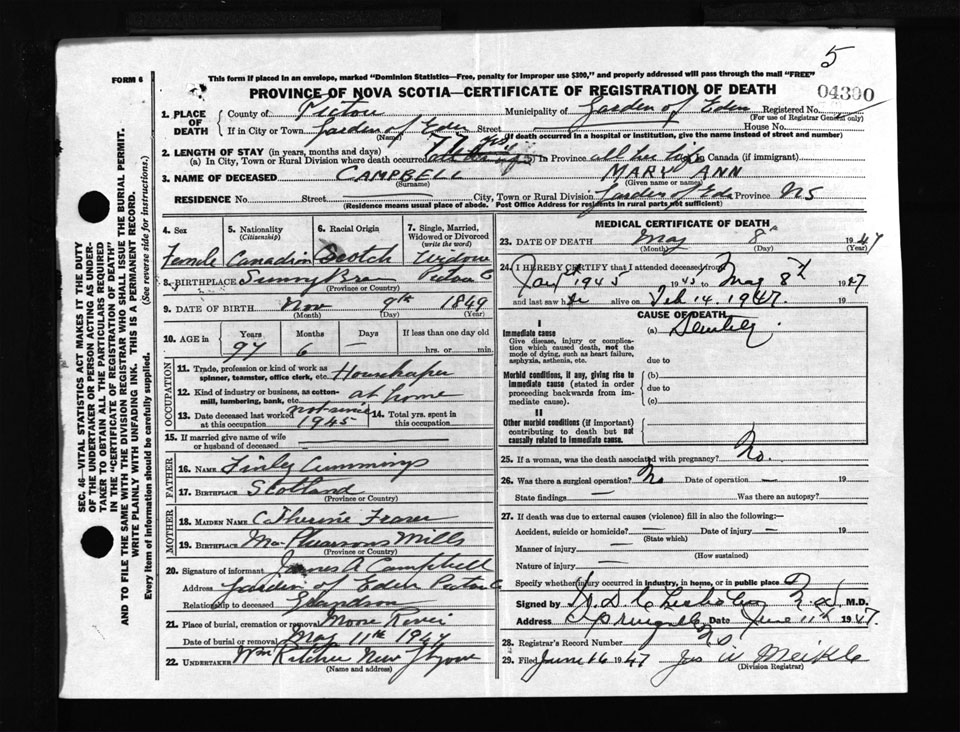 5
FORM 6
This form if placed in an envelope, marked "Dominion Statistics—Free, penalty for improper use $300," and properly addressed will pass through the mail "FREE"
PROVINCE OF NOVA SCOTIA—CERTIFICATE OF REGISTRATION OF DEATH
04300
1. PLACE OF DEATH
County of Pictou Municipality of Garden of Eden Registered No.
(For use of Registrar General only)
If in City or Town Garden of Eden Street House No.
(Name) (If death occurred in a hospital or institution, give the name instead of street and number)
2. LENGTH OF STAY (in years, months and days)
(a) In City, Town or Rural Division where death occurred 77 yrs In Province all her life In Canada (if immigrant)
3. NAME OF DECEASED CAMPBELL MARY ANN
(Surname) (Given name or names)
RESIDENCE No. Street City, Town or Rural Division Garden of Eden Province NS
(Residence means usual place of abode. Post Office Address for residents in rural parts not sufficient)
4. Sex
5. Nationality (Citizenship)
6. Racial Origin
7. Single, Married, Widowed or Divorced (write the word)
Female Canadian Scotch Widow
8. BIRTHPLACE Sunny Brae Pictou C
(Province or Country)
9. DATE OF BIRTH Nov 9th 1849
(Month) (Day) (Year)
10. AGE in
Years Months Days If less than one day old
97 6 — hrs. or min.
OCCUPATION
11. Trade, profession or kind of work as spinner, teamster, office clerk, etc. Housekeeper
12. Kind of industry or business, as cotton-mill, lumbering, bank, etc. at home
13. Date deceased last worked at this occupation not since 1945
14. Total yrs. spent in this occupation
15. If married give name of wife or husband of deceased
FATHER
16. NAME Finley Cummings
17. BIRTHPLACE Scotland
(Province or Country)
MOTHER
18. MAIDEN NAME Catherine Fraser
19. BIRTHPLACE MacPhearsons Mills
(Province or Country)
20. Signature of informant James A Campbell
Address Garden of Eden Pictou C
Relationship to deceased Grandson
21. Place of burial, cremation or removal Moose River
Date of burial or removal May 11th 1947
22. UNDERTAKER Wm New
(Name and address)
MEDICAL CERTIFICATE OF DEATH
23. DATE OF DEATH May 8th 1947
(Month) (Day)
24. I HEREBY CERTIFY that I attended deceased from
Jan 1945 1945 to May 8th 1947
and last saw her alive on Feb 14. 1947.
CAUSE OF DEATH
I
Immediate cause
Give disease, injury or complication which caused death, not the mode of dying, such as heart failure, asphyxia, asthenia, etc.
(a) Senility.
due to
Morbid conditions, if any, giving rise to immediate cause (stated in order proceeding backwards from immediate cause).
(b)
due to
(c)
II
Other morbid conditions (if important) contributing to death but not causally related to immediate cause.
25. If a woman, was the death associated with pregnancy? No.
26. Was there a surgical operation? No Date of operation — 19
State findings — Was there an autopsy?
27. If death was due to external causes (violence) fill in also the following:—
Accident, suicide or homicide? — Date of injury — 19
(State which)
Manner of injury —
(How sustained)
Nature of injury —
Specify whether injury occurred in industry, in home, or in public place
Signed by M.D.
Address Springville Date June 11th 1947.
28. Registrar's Record Number 20
29. Filed June 16 1947 Jas W Meikle
(Division Registrar)
SEC. 46—VITAL STATISTICS ACT MAKES IT THE DUTY
OF THE UNDERTAKER OR PERSON ACTING AS UNDER-
TAKER TO OBTAIN ALL THE PARTICULARS REQUIRED
IN THE "CERTIFICATE OF REGISTRATION OF DEATH"
AND TO FILE THE SAME WITH THE DIVISION REGISTRAR WHO SHALL ISSUE THE BURIAL PERMIT.
WRITE PLAINLY WITH UNFADING INK. THIS IS A PERMANENT RECORD.
Every item of information should be carefully supplied. (See reverse side for instructions.)